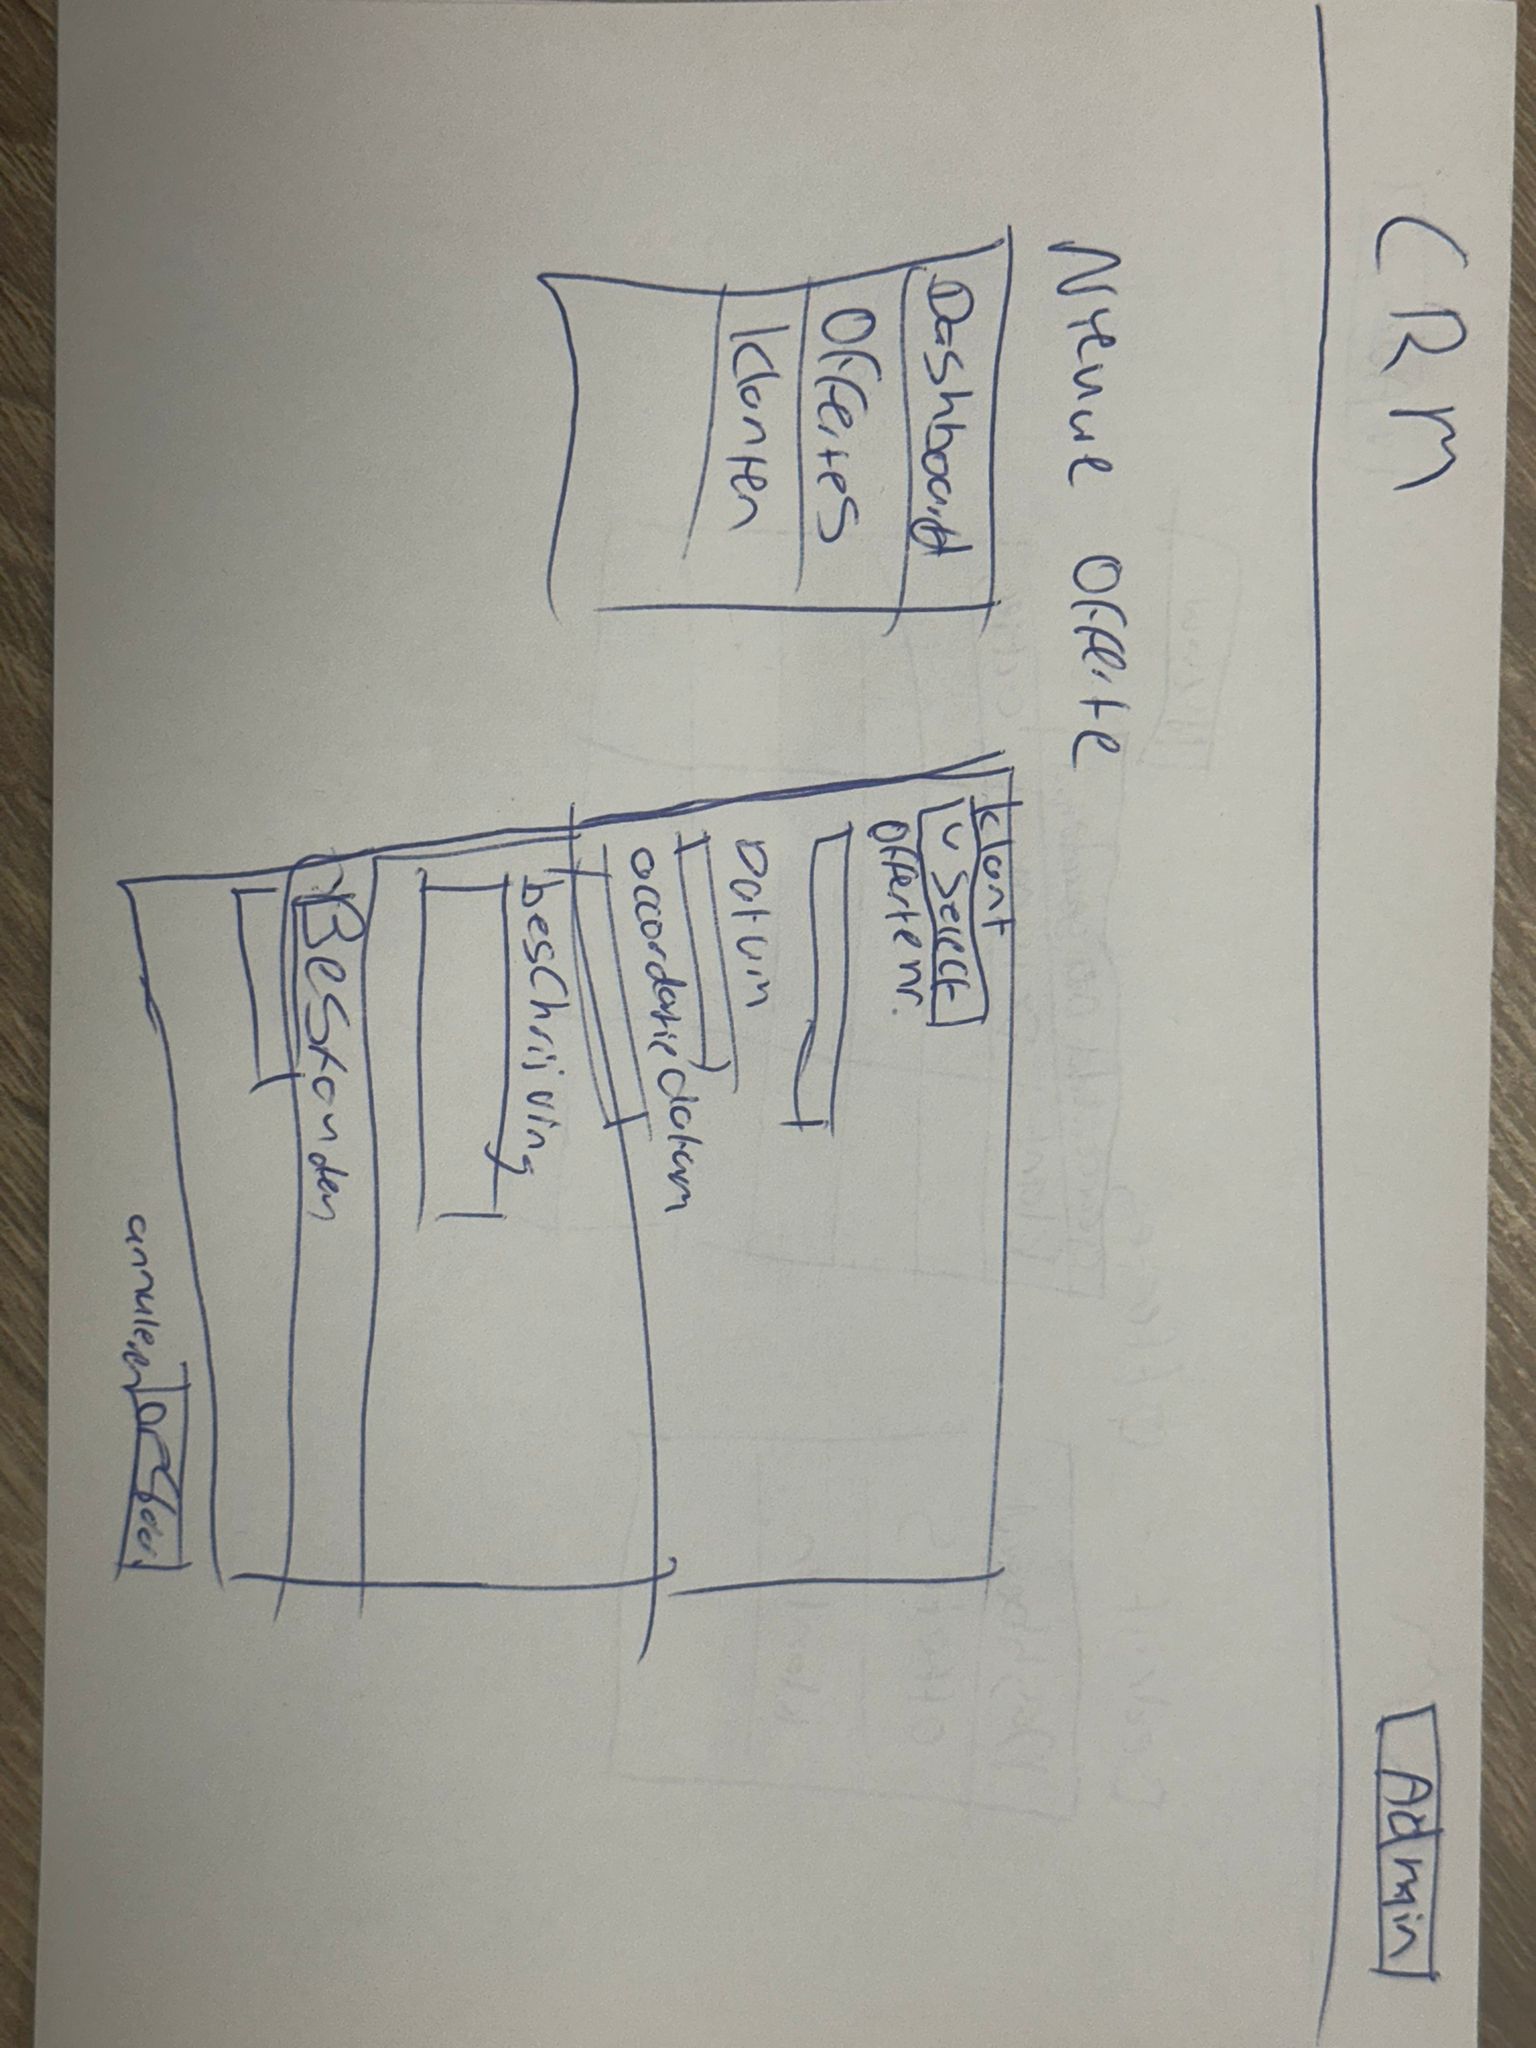 CRM
Admin
Nieuwe Offerte
Dashboard
Offertes
Klanten
Klant
v Select
Offertenr.
Datum
accordatiedatum
beschrijving
Bestanden
annuleren